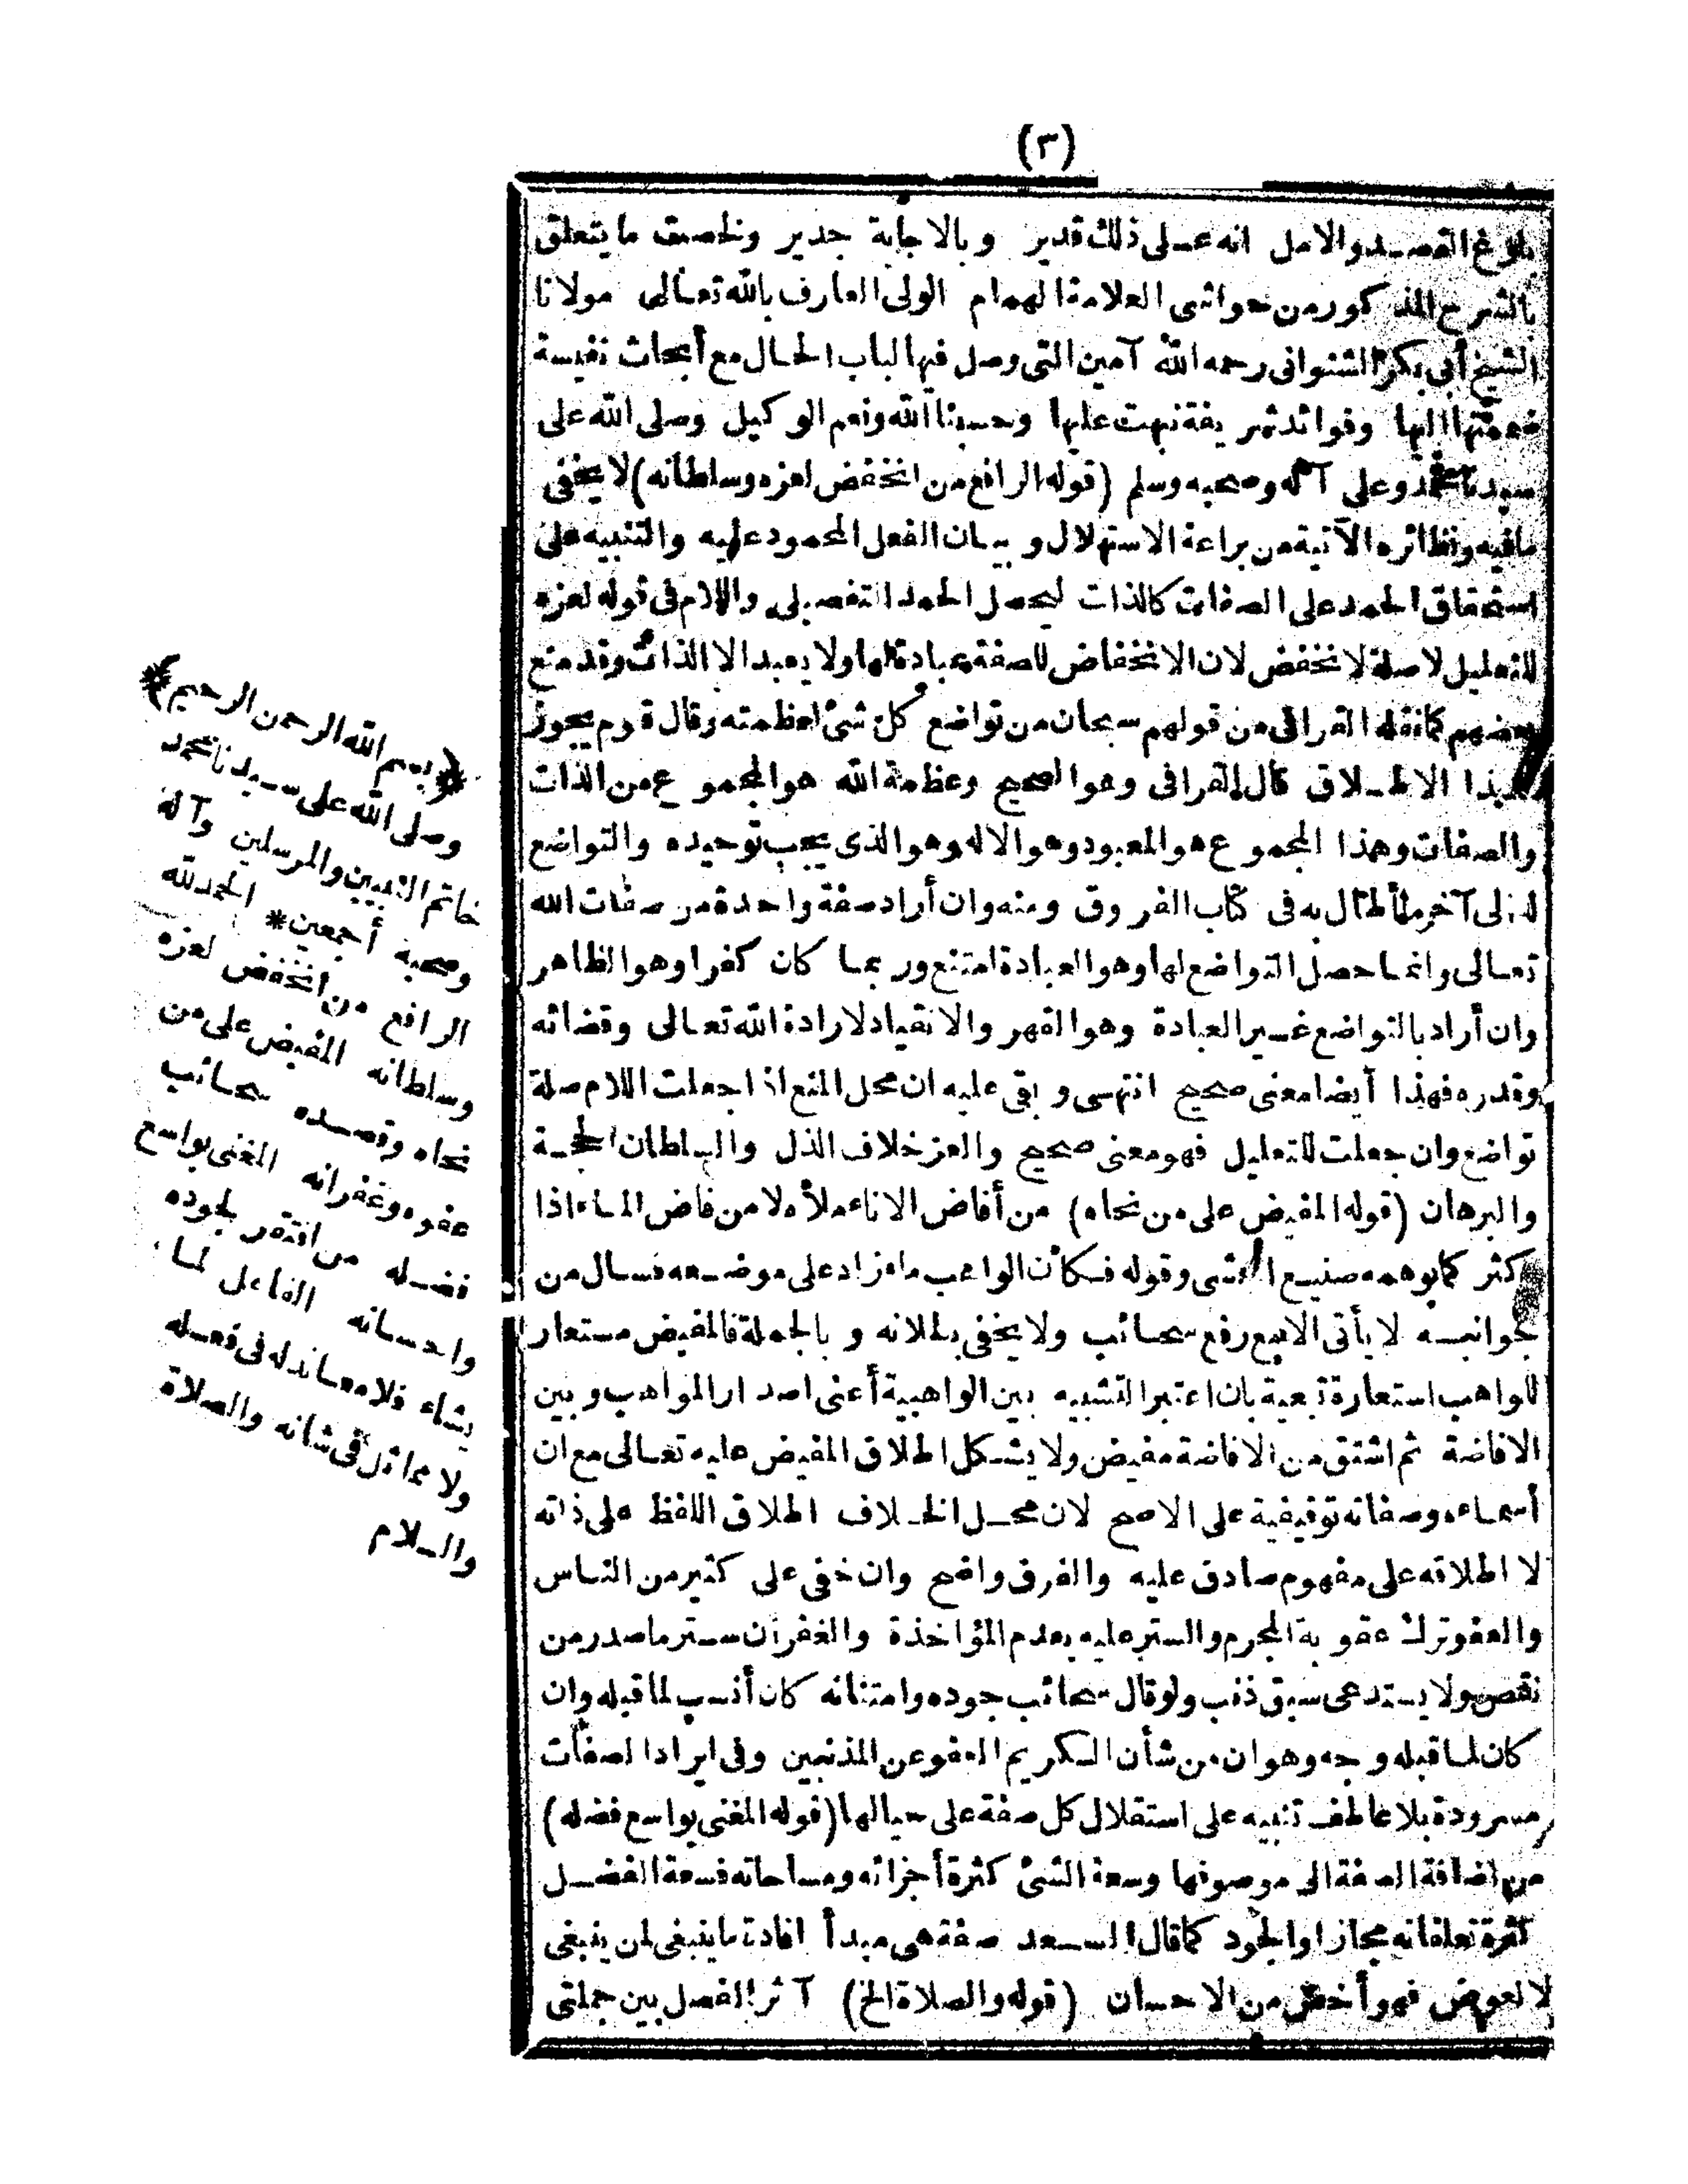 (٣)
بلوغ القصد والامل انه على ذلك قدير وبالاجابة جدير ونلخصت ما يتعلق
بالشرح المذكور من حواشى العلامة الهمام الولى العارف بالله تعالى مولانا
الشيخ أبى بكر الشنوانى رحمه الله آمين التى وصل فيها لباب الحال مع أبحاث نفيسة
ضممتها اليها وفوائد شريفة نبهت عليها وحسبنا الله ونعم الوكيل وصلى الله على
سيدنا محمد وعلى آله وصحبه وسلم (قوله الرافع من انخفض لعزه وسلطانه) لا يخفى
مافيه ونظائره الآتية من براعة الاستهلال وبيان الفعل المحمود عليه والتنبيه على
استحقاق الحمد على الصفات كالذات ليحصل الحمد التفصيلى واللام فى قوله لعزه
للتعليل لاصلة لانخفض لان الانخفاض للصفة عبادة لها ولا يعبد الا الذات وقد منع
بعضهم كما نقله القرافى من قولهم سبحان من تواضع كل شئ لعظمته وقال قوم يجوز
هذا الاطلاق قال القرافى وهو الصحيح وعظمة الله هو المجموع من الذات
والصفات وهذا المجموع هو المعبود وهو الاله وهو الذى يجب توحيده والتواضع
له الى آخر ما أطال به فى كتاب الفروق ومنه وان أراد صفة واحدة من صفات الله
تعالى وانما حصل التواضع لها وهو العبادة امتنع وربما كان كفرا وهو الظاهر
وان أراد بالتواضع غير العبادة وهو القهر والانقياد لارادة الله تعالى وقضائه
وقدره فهذا أيضا معنى صحيح انتهى وبقى عليه ان محل المنع اذا جعلت اللام صلة
تواضع وان جعلت للتعليل فهو معنى صحيح والعز خلاف الذل والسلطان الحجة
والبرهان (قوله المفيض على من نحاه) من أفاض الاناء ملأه لا من فاض الماء اذا
كثر كما يوهمه صنيع المحشى وقوله فكأن الواهب ما زاد على موضعه فسال من
جوانبه لا يأتى الا ببيع رفع سحائب ولا يخفى بطلانه وبالجملة فالمفيض مستعار
للواهب استعارة تبعية بان اعتبر التشبيه بين الواهبية أعنى اصدار المواهب وبين
الافاضة ثم اشتق من الافاضة مفيض ولا يشكل اطلاق المفيض عليه تعالى مع ان
أسماءه وصفاته توقيفية على الاصح لان محل الخلاف اطلاق اللفظ على ذاته
لا اطلاقه على مفهوم صادق عليه والفرق واضح وان خفى على كثير من الناس
والعفو ترك عقوبة المجرم والستر عليه بعدم المؤاخذة والغفران ستر ما صدر من
نقص ولا يستدعى سبق ذنب ولو قال سحائب جوده وامتنانه كان أنسب لما قبله وان
كان لما قبله وجه وهو ان من شأن الكريم العفو عن المذنبين وفى ايراد الصفات
مسرودة بلا عاطف تنبيه على استقلال كل صفة على حيالها (قوله المغنى بواسع فضله)
من اضافة الصفة الى موصوفها وسعة الشئ كثرة أجزائه ومساحاته فسعة الفضل
كثرة تعلقاته مجازا والجود كما قال السعد صفة هى مبدأ افادة ما ينبغى لمن ينبغى
لا لعوض فهو أخص من الاحسان (قوله والصلاة الخ) آثر الفصل بين جملتى
﴿بسم الله الرحمن الرحيم﴾
وصلى الله على سيدنا محمد
خاتم النبيين والمرسلين وآله
وصحبه أجمعين* الحمد لله
الرافع من انخفض لعزه
وسلطانه المفيض على من
نحاه وقصده سحائب
عفوه وغفرانه المغنى بواسع
فضله من افتقر لجوده
واحسانه الفاعل لما
يشاء فلا معاند له فى فعله
ولا مماثل فى شانه والصلاة
والسلام